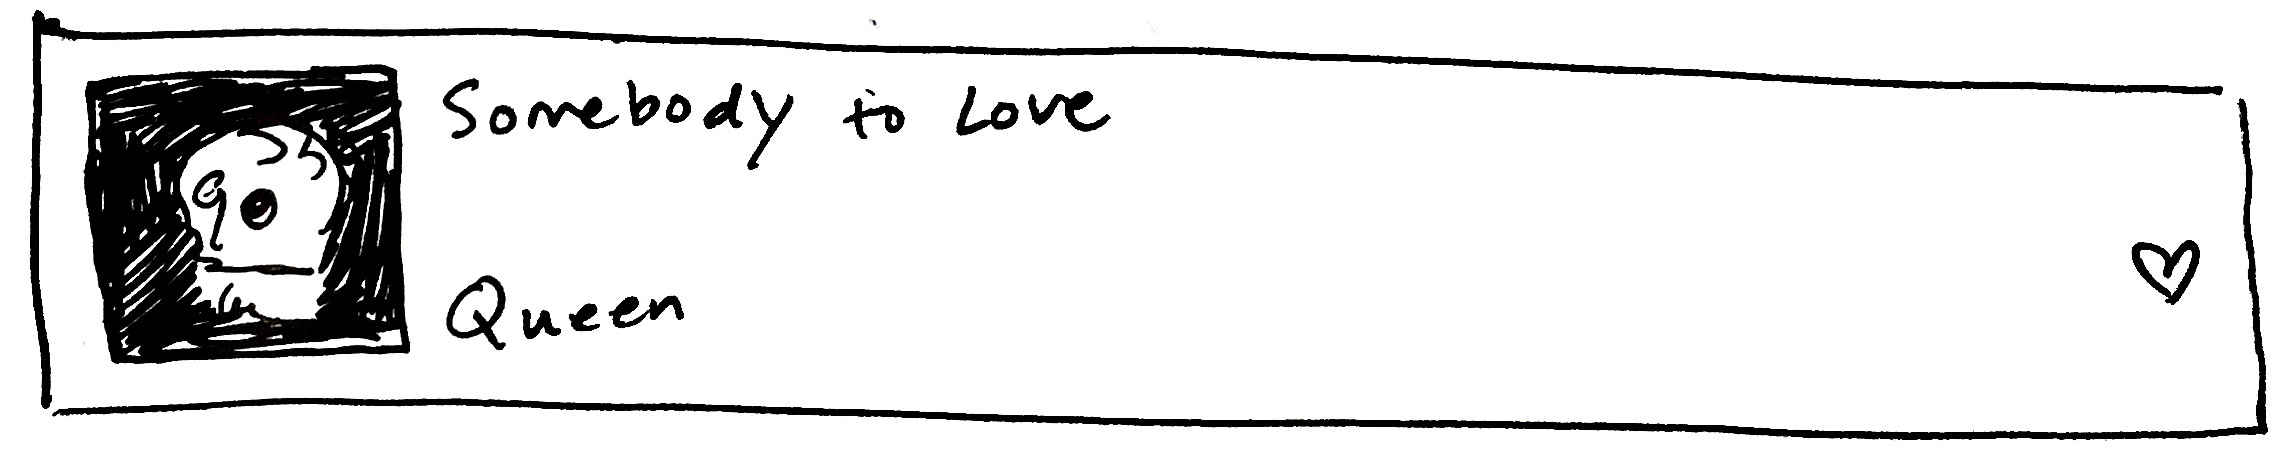 Somebody to Love
Queen